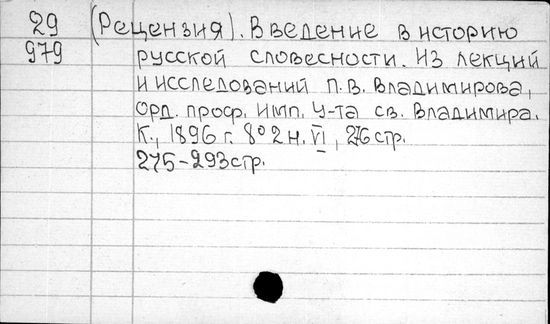 29 (Рецензия). Введение в историю
979 русской словесности. Из лекций
и исследований П. В. Владимирова,
орд. проф. Имп. У-та св. Владимира.
К., 1896 г. 8° 2 н. VI, 276 стр.
275-293 стр.